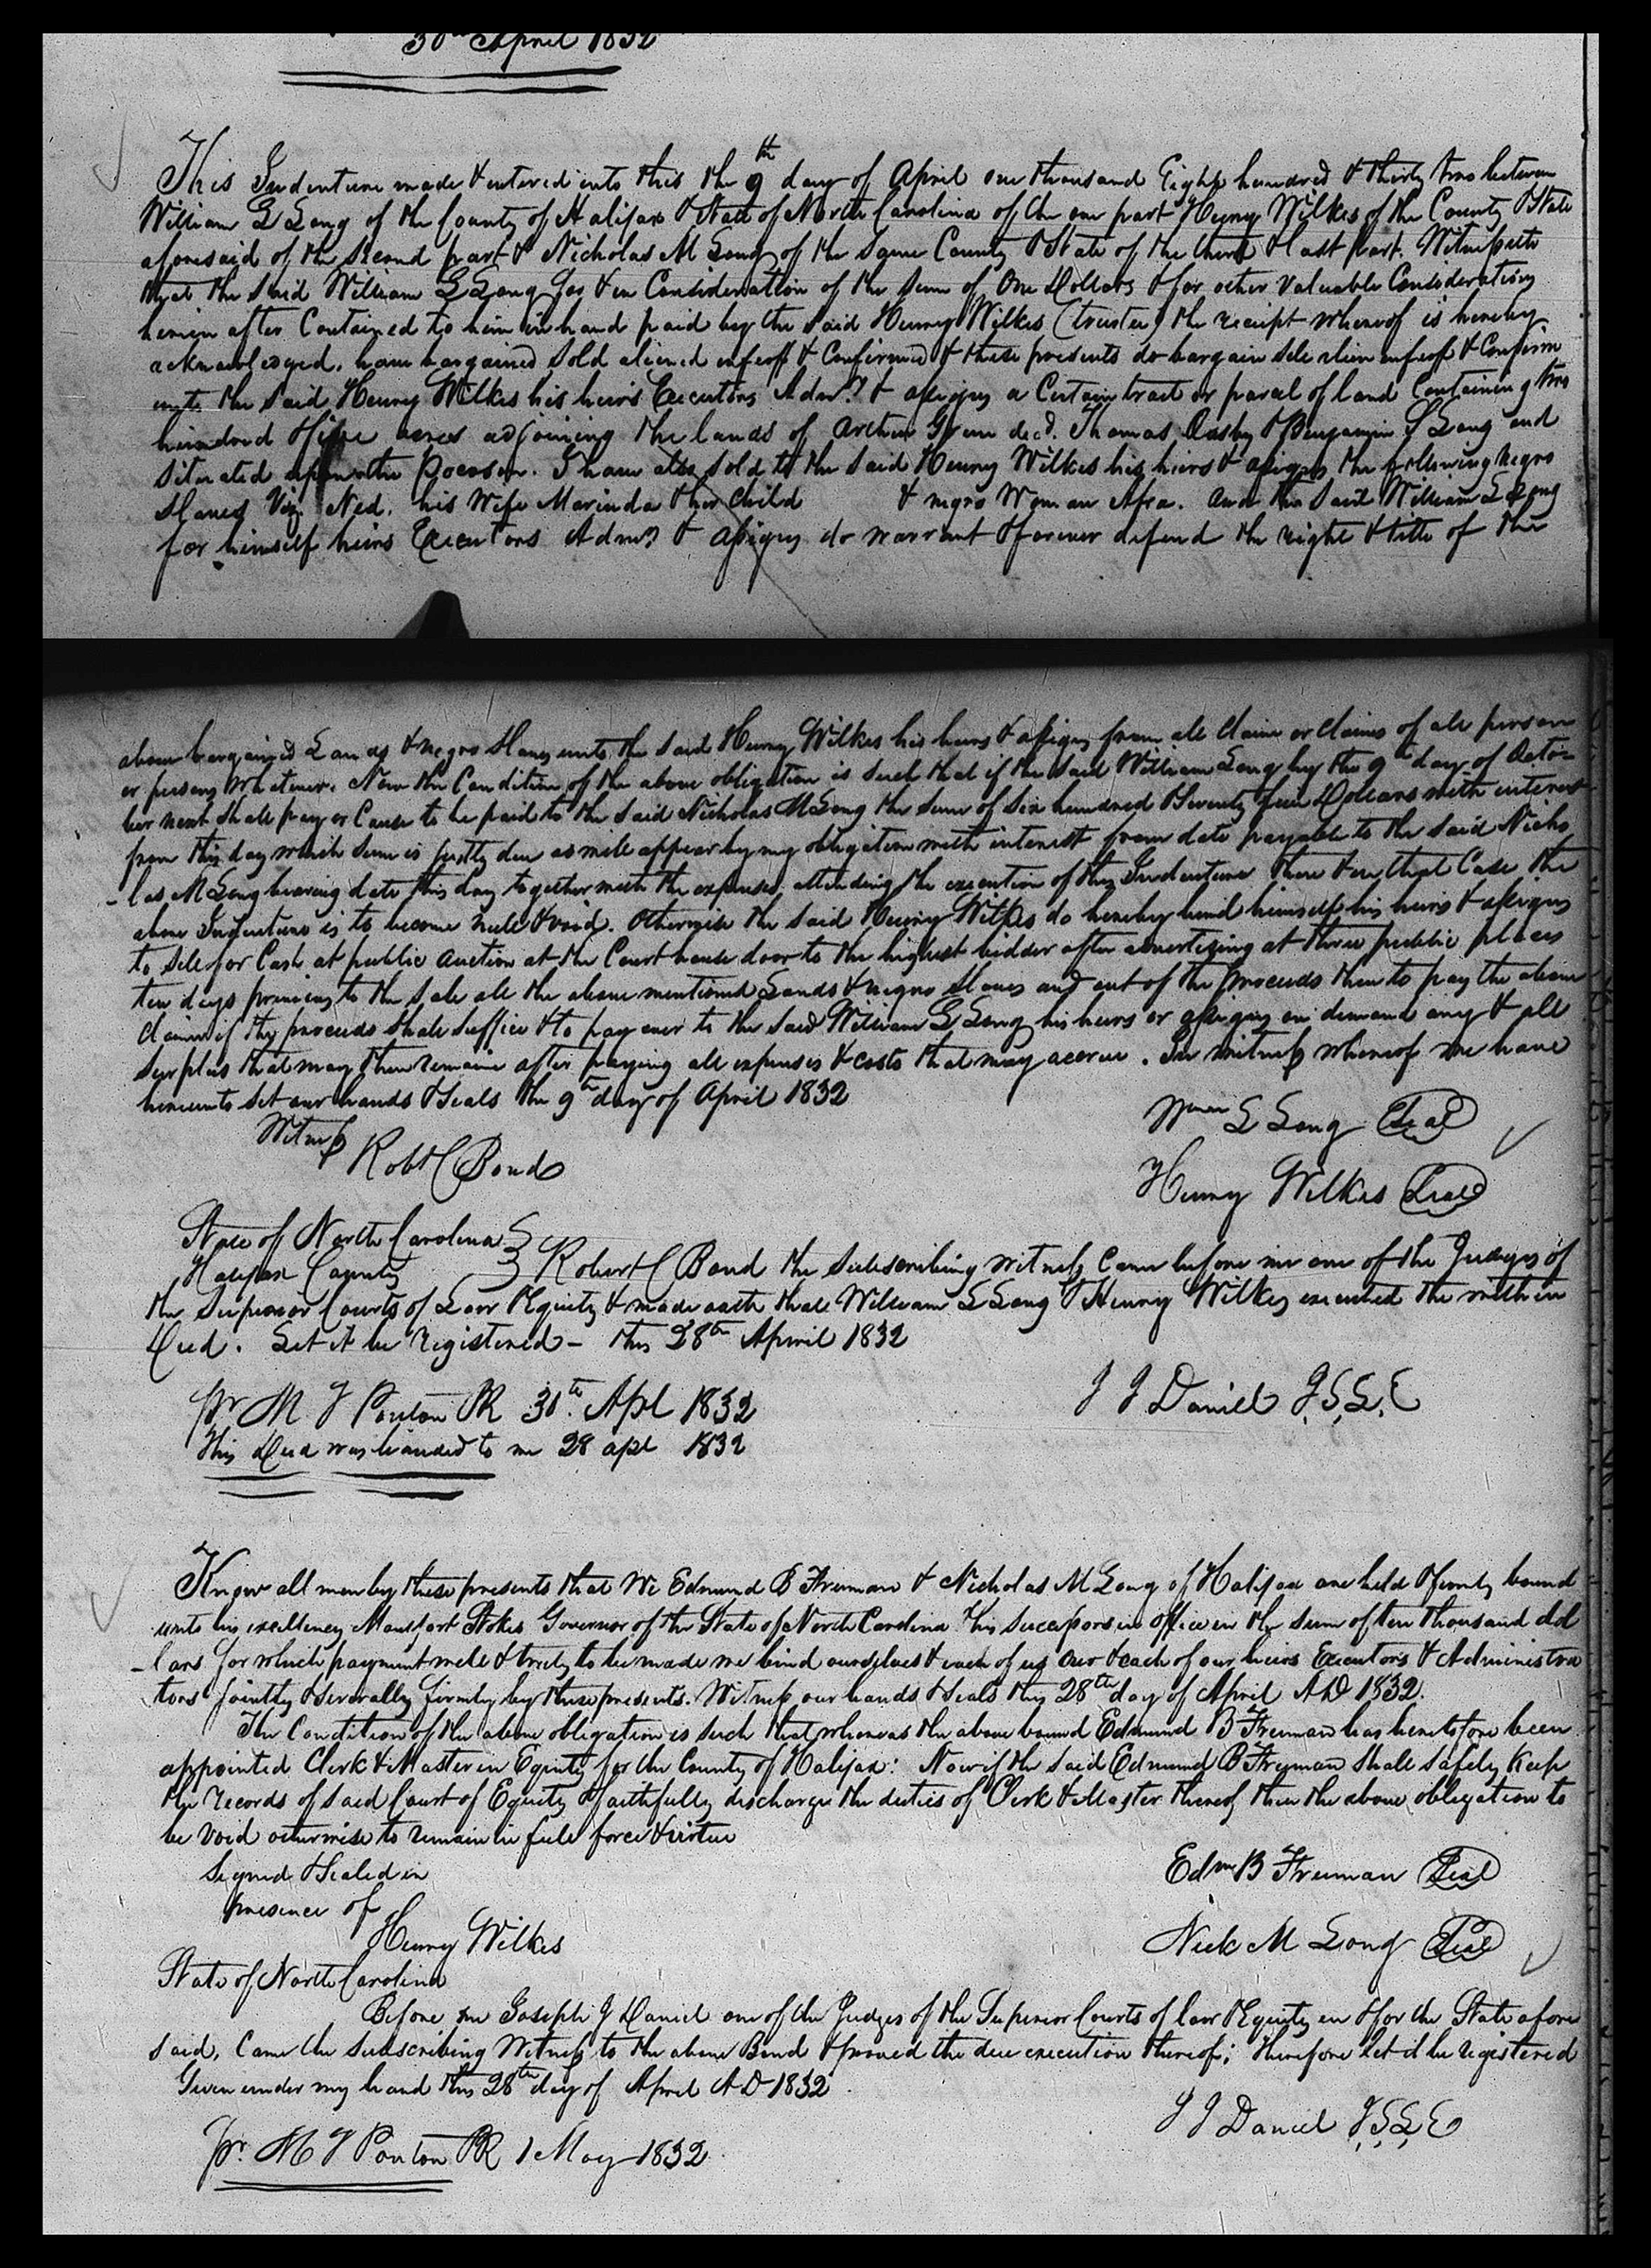 30th April 1832
This Indenture made & entered into this the 9th day of April one thousand Eight hundred & thirty two between
William L Long of the County of Halifax & State of North Carolina of the one part Henry Wilkes of the County & State
aforesaid of the second part & Nicholas M Long of the same County & State of the third & last part. Witnesseth
that the said William L Long for & in Consideration of the sum of One Dollars & for other valuable Considerations
herein after Contained to him in hand paid by the said Henry Wilkes (trustee) the receipt whereof is hereby
acknowledged, have bargained sold aliened enfeoff & Confirmed & these presents do bargain sell alien enfeoff & Confirm
unto the said Henry Wilkes his heirs Executors Admrs & assigns a Certain tract or parcel of land Containing two
hundred & five acres adjoining the lands of Arthur Green decd. Thomas Ousby & Benjamin S Long and
situated upon the Pocoson. I have also sold to the said Henry Wilkes his heirs & assigns the following negro
slaves Viz Ned, his Wife Marinda & her child & negro Woman Afra. And the said William L Long
for himself heirs Executors Admrs & assigns do warrant & forever defend the right & title of the
above bargained Lands & negro slaves unto the said Henry Wilkes his heirs & assigns from all claim or claims of all person
or persons whatever. Now the Condition of the above obligation is such that if the said William Long by the 9th day of Octo-
ber next shall pay or Cause to be paid to the said Nicholas M Long the sum of six hundred & seventy four Dollars with interest
from this day which sum is justly due as will appear by my obligation with interest from date payable to the said Nicho
-las M Long bearing date this day together with the expenses attending the execution of this Indenture then & in that Case the
above Indenture is to become null & void. Otherwise the said Henry Wilkes do hereby bind himself his heirs & assigns
to sell for Cash at public auction at the Court house door to the highest bidder after advertising at three public places
ten days previous to the sale all the above mentioned Lands & negro slaves and out of the proceeds then to pay the above
claim if the proceeds shall suffice & to pay over to the said William L Long his heirs or assigns on demand any & all
surplus that may then remain after paying all expenses & costs that may accrue. In witness whereof we have
hereunto set our hands & seals the 9th day of April 1832
Witness
Wm L Long Seal
Robt C Bond
Henry Wilkes Seal
State of North Carolina
Halifax County
Robert C Bond the subscribing witness Came before me one of the Judges of
the Superior Courts of Law & Equity & made oath that William L Long & Henry Wilkes executed the within
Deed. Let it be registered - this 28th April 1832
J J Daniel J.S.L.E
pr M J Ponton PR 30th Apl 1832
This Deed was handed to me 28 apl 1832
Know all men by these presents that We Edmund B Freeman & Nicholas M Long of Halifax are held & firmly bound
unto his excellency Monfort Stokes Governor of the State of North Carolina & his successors in office in the sum of ten thousand dol
-lars for which payment well & truly to be made we bind ourselves & each of us our & each of our heirs Executors & Administra
tors jointly & severally firmly by these presents. Witness our hands & seals this 28th day of April AD 1832.
The Condition of the above obligation is such that whereas the above bound Edmund B Freeman has heretofore been
appointed Clerk & Master in Equity for the County of Halifax: Now if the said Edmund B Freeman shall safely keep
the records of said Court of Equity & faithfully discharge the duties of Clerk & Master thereof then the above obligation to
be void otherwise to remain in full force & virtue
Signed & sealed in
presence of
Edm B Freeman Seal
Henry Wilkes
Nick M Long Seal
State of North Carolina
Before me Joseph J Daniel one of the Judges of the Superior Courts of law & Equity in & for the State afore
said, Came the subscribing Witness to the above Bond & proved the due execution thereof; therefore let it be registered
Given under my hand this 28th day of April AD 1832
J J Daniel J.S.L.E
pr. M J Ponton PR 1 May 1832